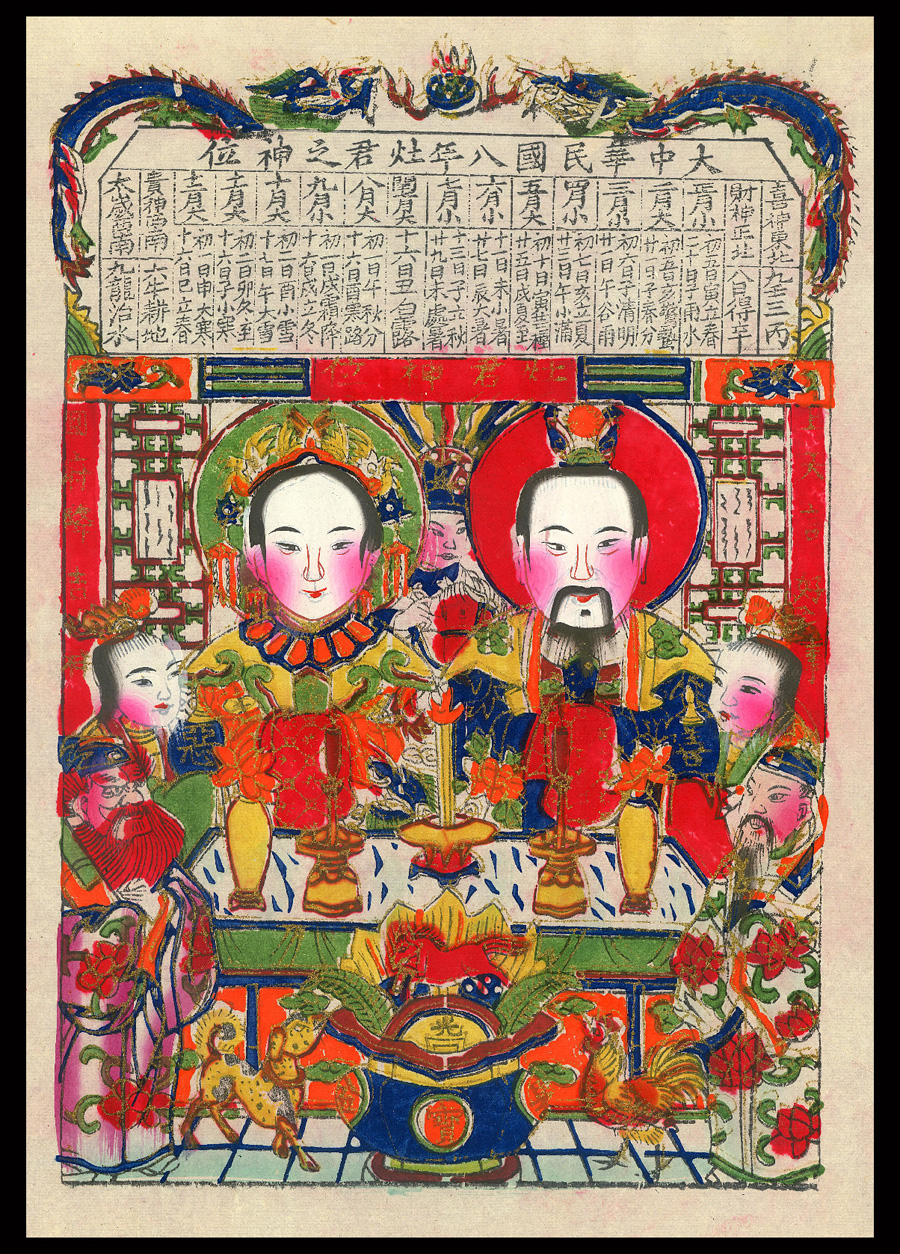 大中華民國八年灶君之神位
喜神東北 九牛三丙
財神正北 八日得辛
正月小 初五日寅立春 二十日子雨水
二月大 初五日亥驚蟄 廿日子春分
三月小 初六日子清明 廿日午谷雨
四月小 初七日亥立夏 廿三日午小滿
五月大 初十日寅芒種 廿五日戌夏至
六月小 十一日未小暑 廿七日辰大暑
七月小 十三日子六秋 廿九日未處暑
閏月大 十六日丑白露
八月大 初一日午秋分 十六日酉寒路
九月小 初一日戌霜降 十六日戌立冬
十月大 初二日酉小雪 十七日午大雪
十一月大 初二日卯冬至 十六日子小寒
十二月大 初一日申大寒 十六日巳立春
貴神西南 六牛耕地
太歲西南 九龍治水
灶君神位
寶